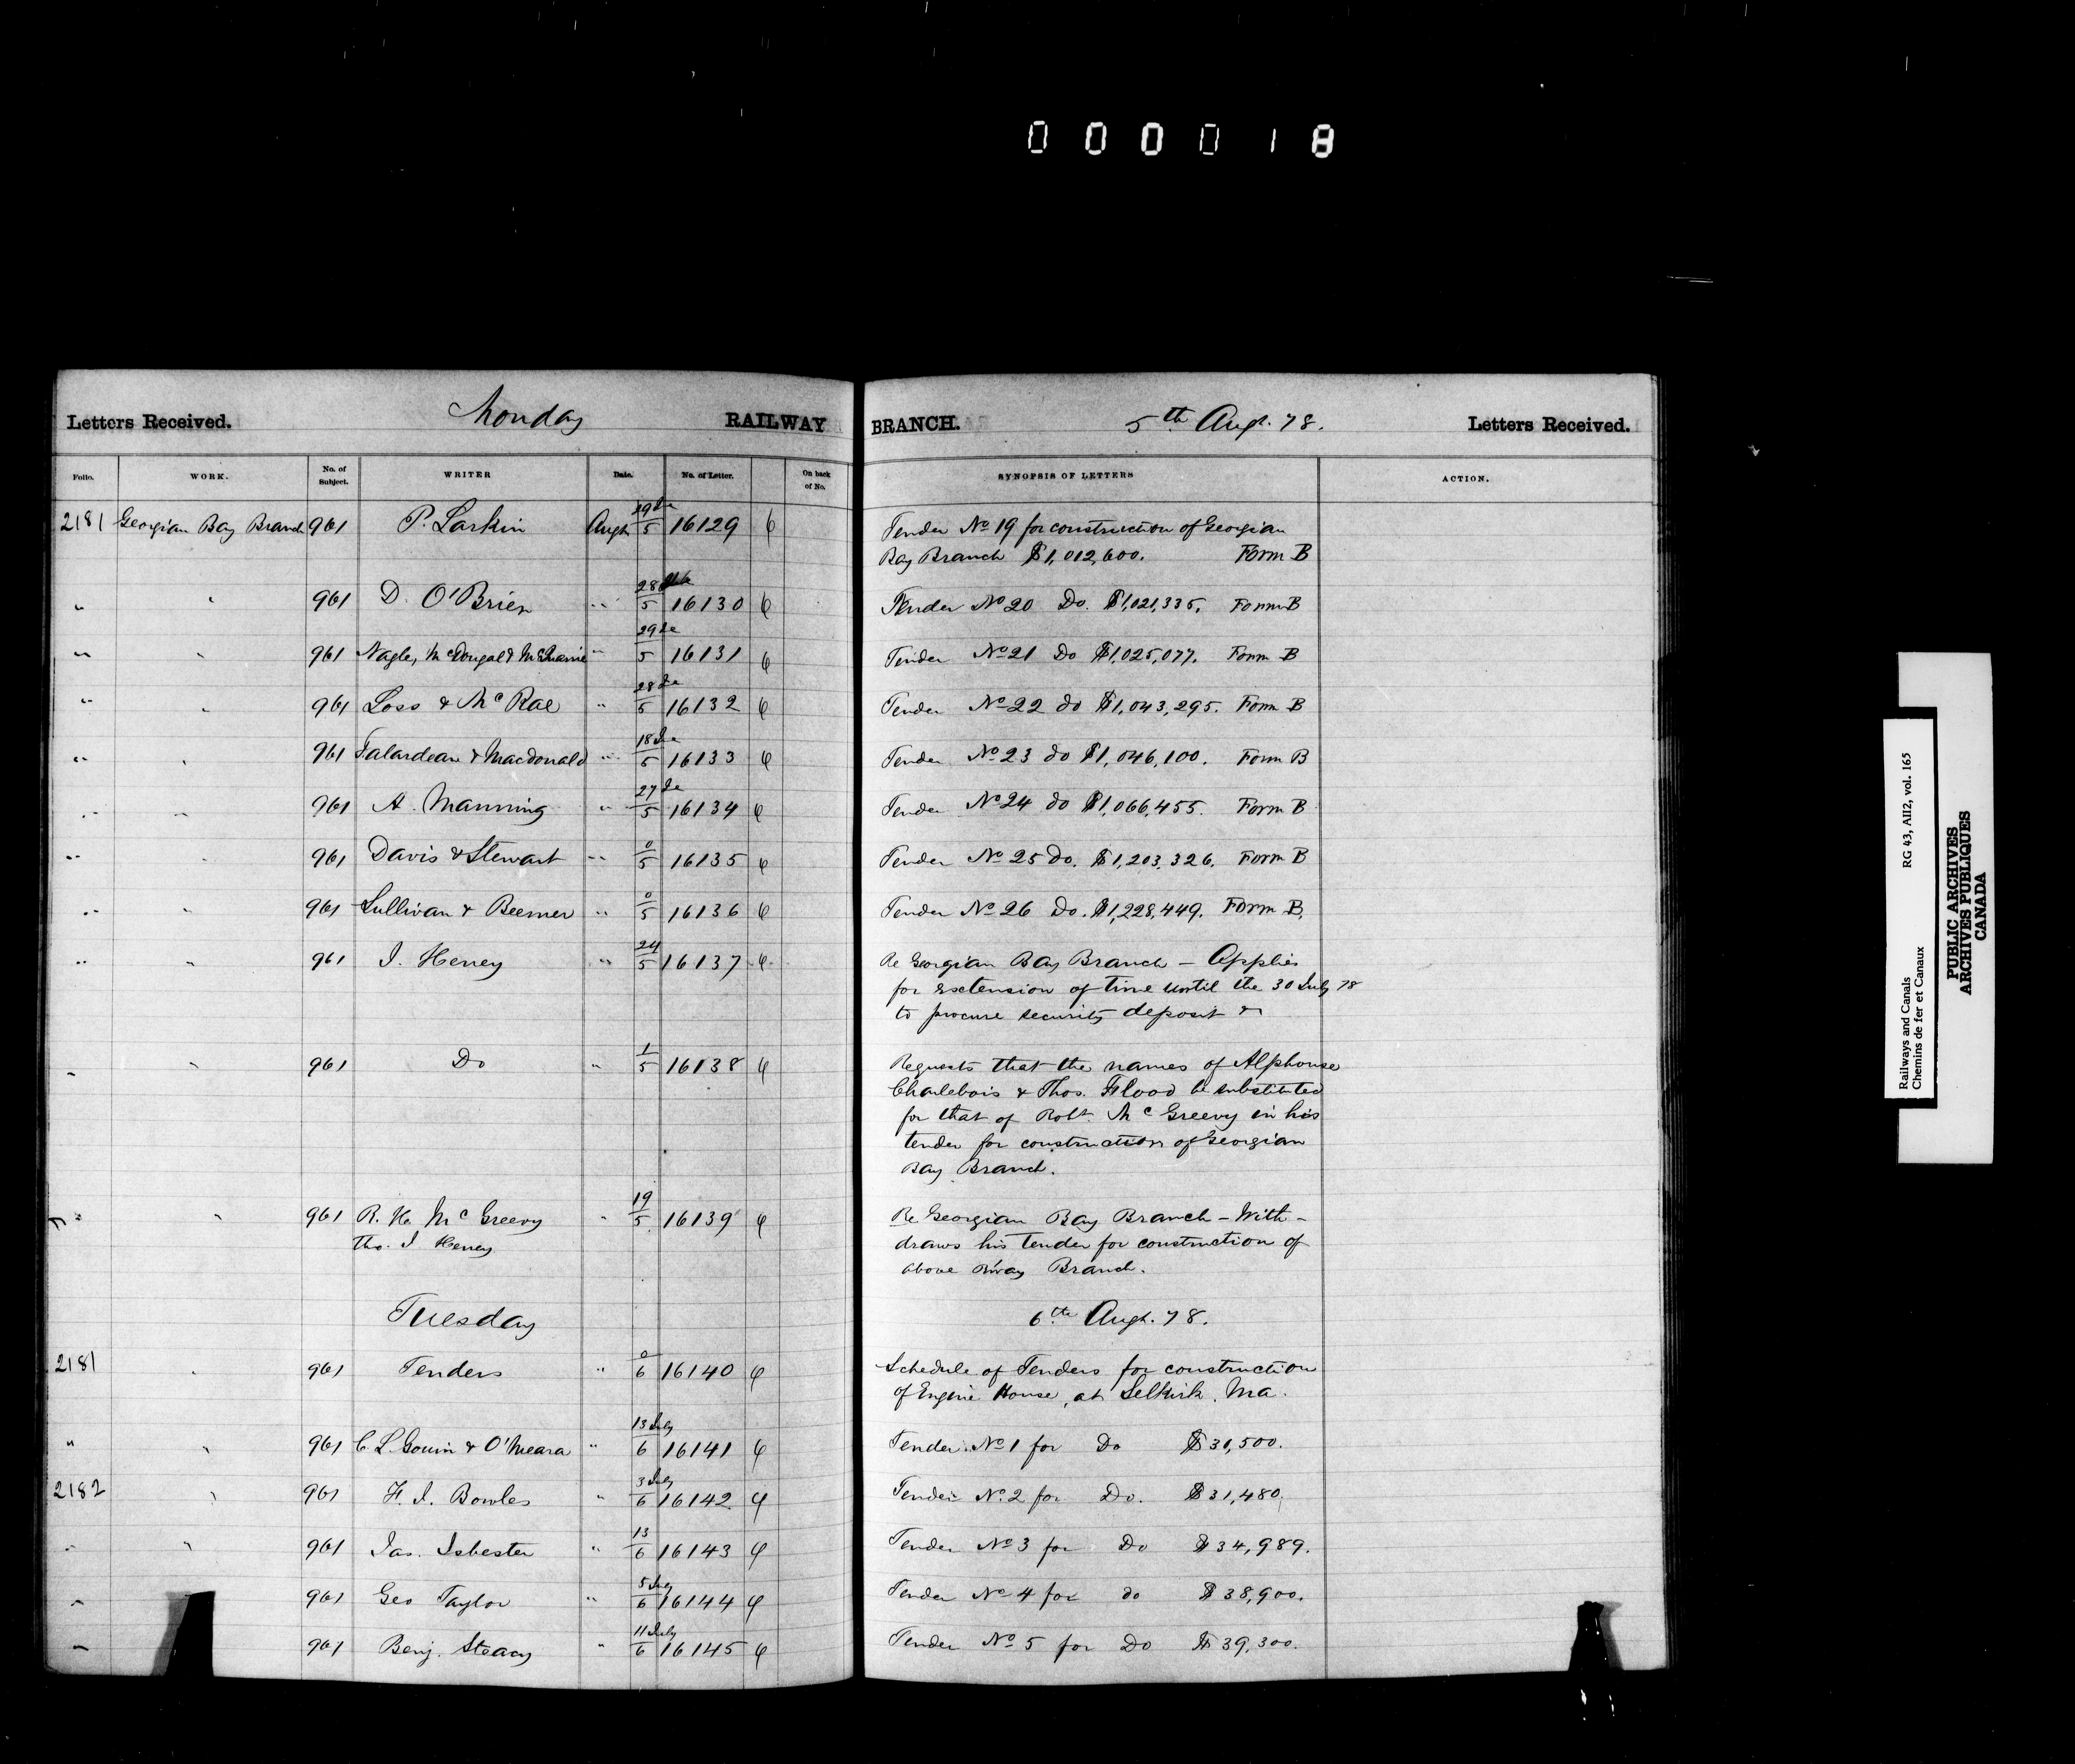 000018
Letters Received. Monday RAILWAY BRANCH. 5th Augt. 78. Letters Received.
Folio. WORK. No. of Subject. WRITER Date. No. of Letter. On back of No. SYNOPSIS OF LETTERS ACTION.
2181 Georgian Bay Branch 961 P. Larkin Augt 29/5 16129 Tender No 19 for construction of Georgian
Bay Branch $1,012,600. Form B
" " 961 D. O'Brien " 28/5 16130 Tender No 20 Do. $1,021,335. Form B
" " 961 Nagle, McDougal & " 29/5 16131 Tender No 21 Do $1,025,077. Form B
" " 961 Loss & McRae " 28/5 16132 Tender No 22 do $1,043,295. Form B
" " 961 Falardeau & Macdonald " 18/5 16133 Tender No 23 do $1,046,100. Form B
" " 961 A. Manning " 27/5 16134 Tender No 24 do $1,066,455. Form B
" " 961 Davis & Stewart " 0/5 16135 Tender No 25 Do. $1,203,326. Form B
" " 961 Sullivan & Beemer " 0/5 16136 Tender No 26 Do. $1,228,449. Form B.
" " 961 J. Heney " 24/5 16137 Re Georgian Bay Branch — Applies
for extension of time until the 30 July 78
to procure security deposit &c
" " 961 Do " 1/5 16138 Requests that the names of Alphonse
Charlebois & Thos. Flood be substituted
for that of Robt. McGreevy in his
tender for construction of Georgian
Bay Branch.
" " 961 R. H. McGreevy " 19/5 16139 Re Georgian Bay Branch — With-
Tho. J Heney draws his tender for construction of
above R'way Branch.
Tuesday 6th Augt. 78.
2181 " 961 Tenders " 0/6 16140 Schedule of Tenders for construction
of Engine House, at Selkirk, Ma.
" " 961 C. L. Gouin & O'Meara " 13 July/6 16141 Tender No 1 for Do $30,500.
2182 " 961 H. J. Bowles " 3 July/6 16142 Tender No. 2 for Do. $31,480.
" " 961 Jas. Isbester " 13/6 16143 Tender No 3 for Do $34,989.
" " 961 Geo Taylor " 5 July/6 16144 Tender No 4 for do $38,900.
" " 961 Benj. Steacy " 11 July/6 16145 Tender No 5 for Do $39,300.
Railways and Canals RG 43, AII2, vol. 165
Chemins de fer et Canaux
PUBLIC ARCHIVES
ARCHIVES PUBLIQUES
CANADA